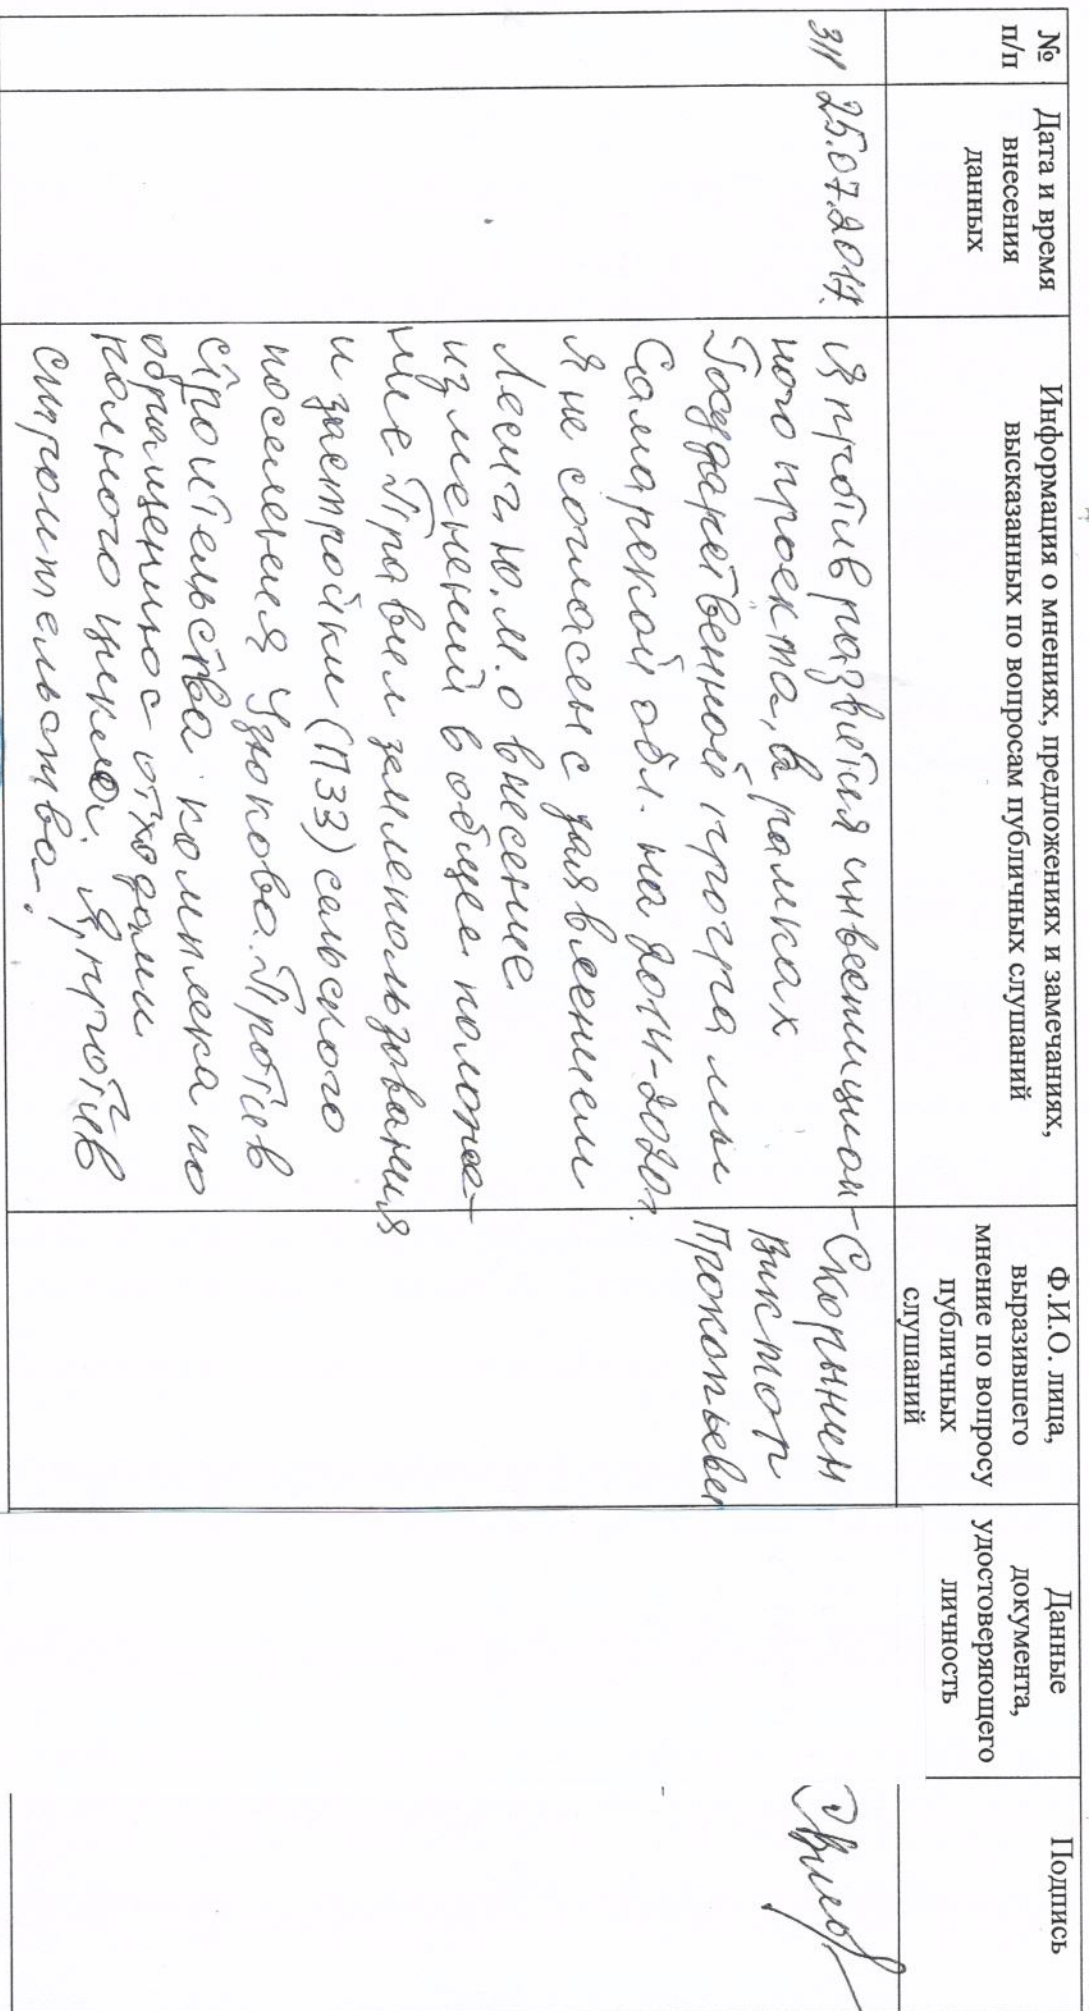 №
п/п
Дата и время
внесения
данных
Информация о мнениях, предложениях и замечаниях,
высказанных по вопросам публичных слушаний
Ф.И.О. лица,
выразившего
мнение по вопросу
публичных
слушаний
Данные
документа,
удостоверяющего
личность
Подпись
311
25.07.2017.
Я против развития инвестицион-
ного проекта, в рамках
Государственной программы
Самарской обл. на 2014-2020г.
Я не согласен с заявлением
Ю.М. о внесение
изменений в общее положе-
ние Правил землепользования
и застройки (ПЗЗ) сельского
поселения Узюково. Против
строительства комплекса по
обращению с отходами
полного цикла. Я против
строительства.
Скорынин
Виктор
Прокопьевич